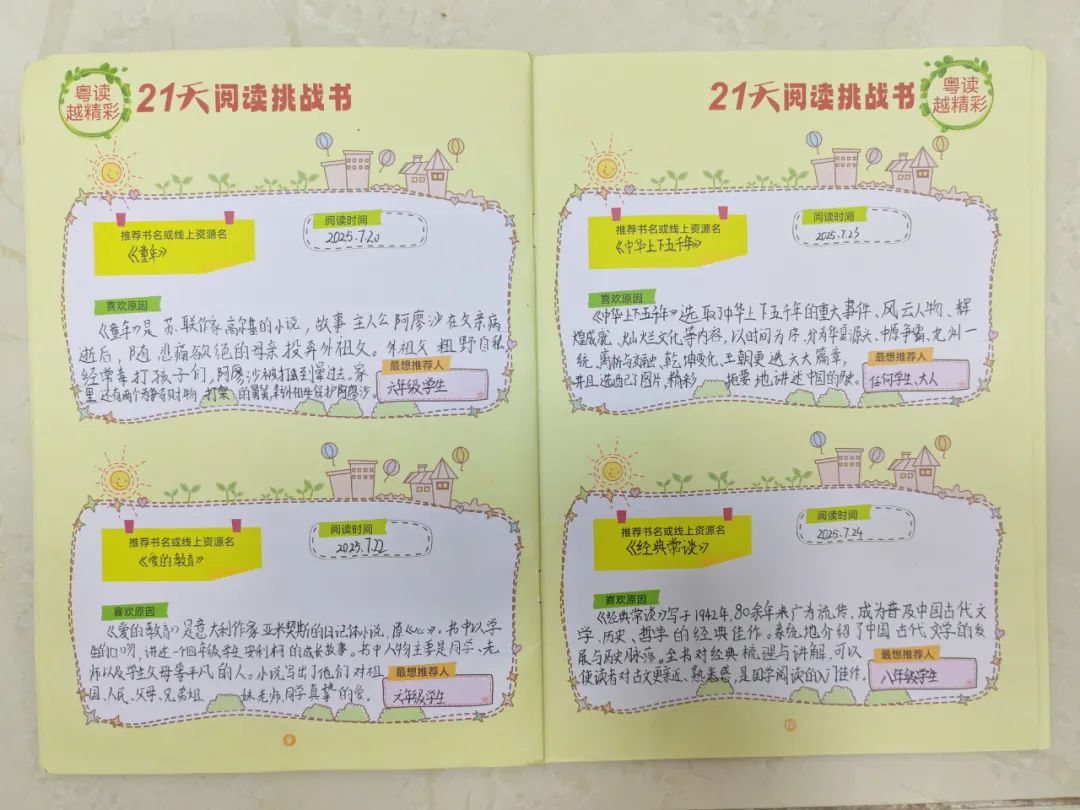 粤读
越精彩
21天阅读挑战书
推荐书名或线上资源名
《童年》
阅读时间
2025.7.20
喜欢原因
《童年》是苏联作家高尔基的小说，故事主人公阿廖沙在父亲病
逝后，随悲痛欲绝的母亲投奔外祖父。外祖父粗野自私
经常毒打孩子们，阿廖沙被打到晕过去。家
里还有两个为争夺财物打架的舅舅，幸外祖母保护阿廖沙。
最想推荐人
六年级学生
推荐书名或线上资源名
《爱的教育》
阅读时间
2025.7.22
喜欢原因
《爱的教育》是意大利作家亚米契斯的日记体小说，原《心》。书中以学
生的口吻，讲述一个四年级学生安利柯的成长故事。书中人物主要是同学、老
师以及学生父母等平凡的人。小说写出了他们对祖
国、人民、父母、兄弟姐妹、老师、同学真挚的爱。
最想推荐人
六年级学生
9
21天阅读挑战书
粤读
越精彩
推荐书名或线上资源名
《中华上下五千年》
阅读时间
2025.7.23
喜欢原因
《中华上下五千年》选取了中华上下五千年的重大事件、风云人物、辉
煌成就、灿烂文化等内容，以时间为序，分为华夏源头、中原争霸、九州一
统、离析与交融、乾坤变化、王朝更迭六大篇章，
并且选配了图片，精彩扼要地讲述中国的历史。
最想推荐人
任何学生、大人
推荐书名或线上资源名
《经典常谈》
阅读时间
2025.7.24
喜欢原因
《经典常谈》写于1942年，80余年来广为流传，成为普及中国古代文
学、历史、哲学的经典佳作。系统地介绍了中国古代文学的发
展与历史脉落。全书对经典梳理与讲解，可以
使读者对古文更亲近、熟悉感，是国学阅读的入门佳作。
最想推荐人
八年级学生
10